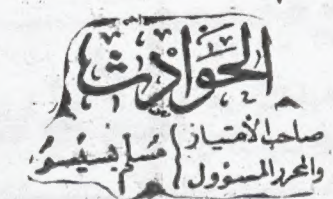 الحَوَادْث
صاحب الأمتياز
والمحرر المسؤول
مسلم بسيسو